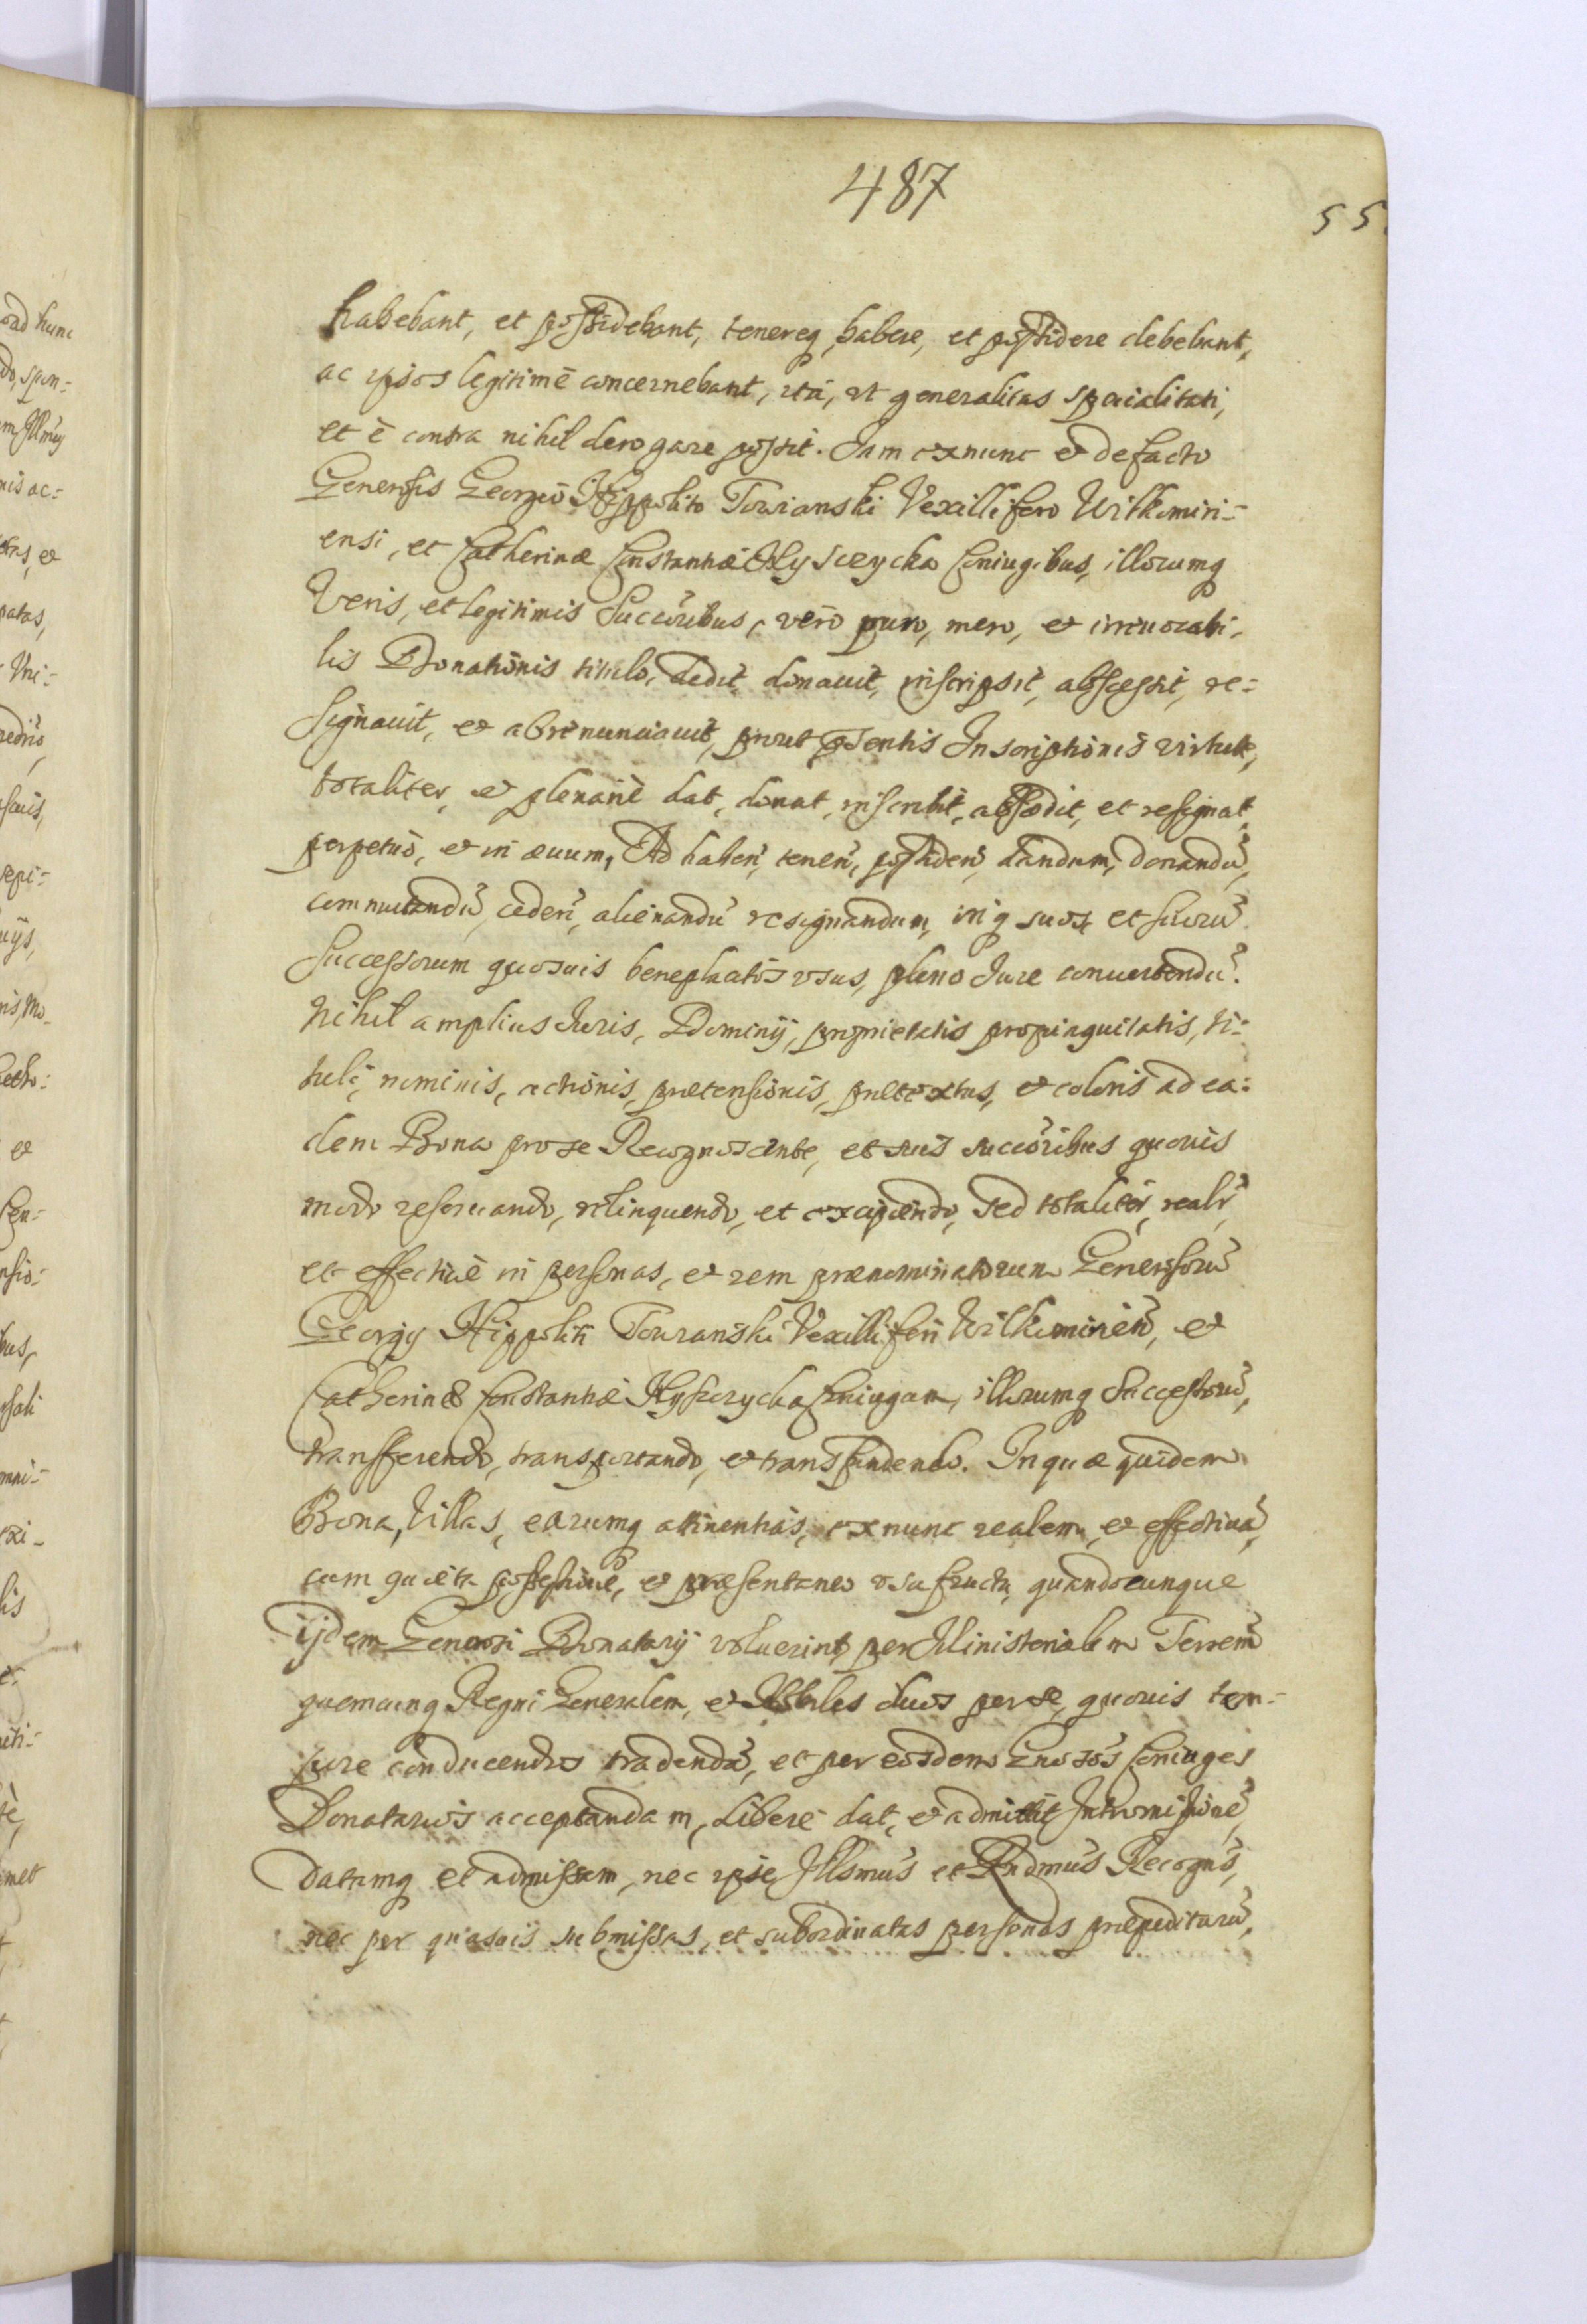 487
55
habebant, et possidebant, tenereq, habere, et possidere debebant,
ac ipsos legitimè concernebant, ità, ut generalitas specialitati,
et è contra nihil derogare possit. Iam exnunc et defacto
Generosis Georgio Hippolito Towianski Vexillifero Wilkomiri-
ensi, et Catherinæ Constantiæ Hyszczycka Coniugibus, illorumq
Veris, et legitimis Succoribus, verò puro, mero, et irreuocabi-
lis Donationis titulo, dedit, donauit, inscripsit, abscessit, re-
signauit, et abrenunciauit, prout pñtentis Inscriptionis virtute,
totaliter, et plenariè dat, donat, inscribit, abscedit, et resignat,
perpetuò, et in æuum, Ad haben̄, tenen̄, possiden̄, dandum, donandū,
commutandū, ceden̄, alienandū resignandum, inq suos et suorū
Successorum quosuis beneplacitos usus, pleno Iure conuertendū.
Nihil amplius Iuris, Dominij, proprietatis propinquitatis, ti-
tuli, nominis, actionis, prætensionis, prætextus, et coloris ad ea-
dem Bona pro se Recognoscente, et suis succoribus quouis
modo reseruando, relinquendo, et excipiendo, sed totaliter, realr̄,
et effectiuè in personas, et rem prænominatorum Generosorū
Georgij Hippoliti Towianski Vexilliferi Wilkomirien̄, et
Catherinæ Constantiæ Hyszczycka Coniugum, illorumq Successorū,
transferendo, transportando, et transfundendo. In quæ quidem
Bona, Villas, earumq attinentias, exnunc realem, et effectiuā,
cum quieta possessione, et præsentaneo usufructu, quandocunque
ijdem Generosi Donatarij voluerint, per Ministerialem Terrem̄
quemcunq Regni Generalem, et Nobiles duos per se, quouis tem-
pore conducendos tradendā, et per eosdem Gnosos Coniuges
Donatarios acceptandam, liberè dat, et admittit Intromissionē,
datamq et admissam, nec ipse Illsmus et Rndmus Recogn̄s,
nec per quasuis submissas, et subordinatas personas præpeditarū,